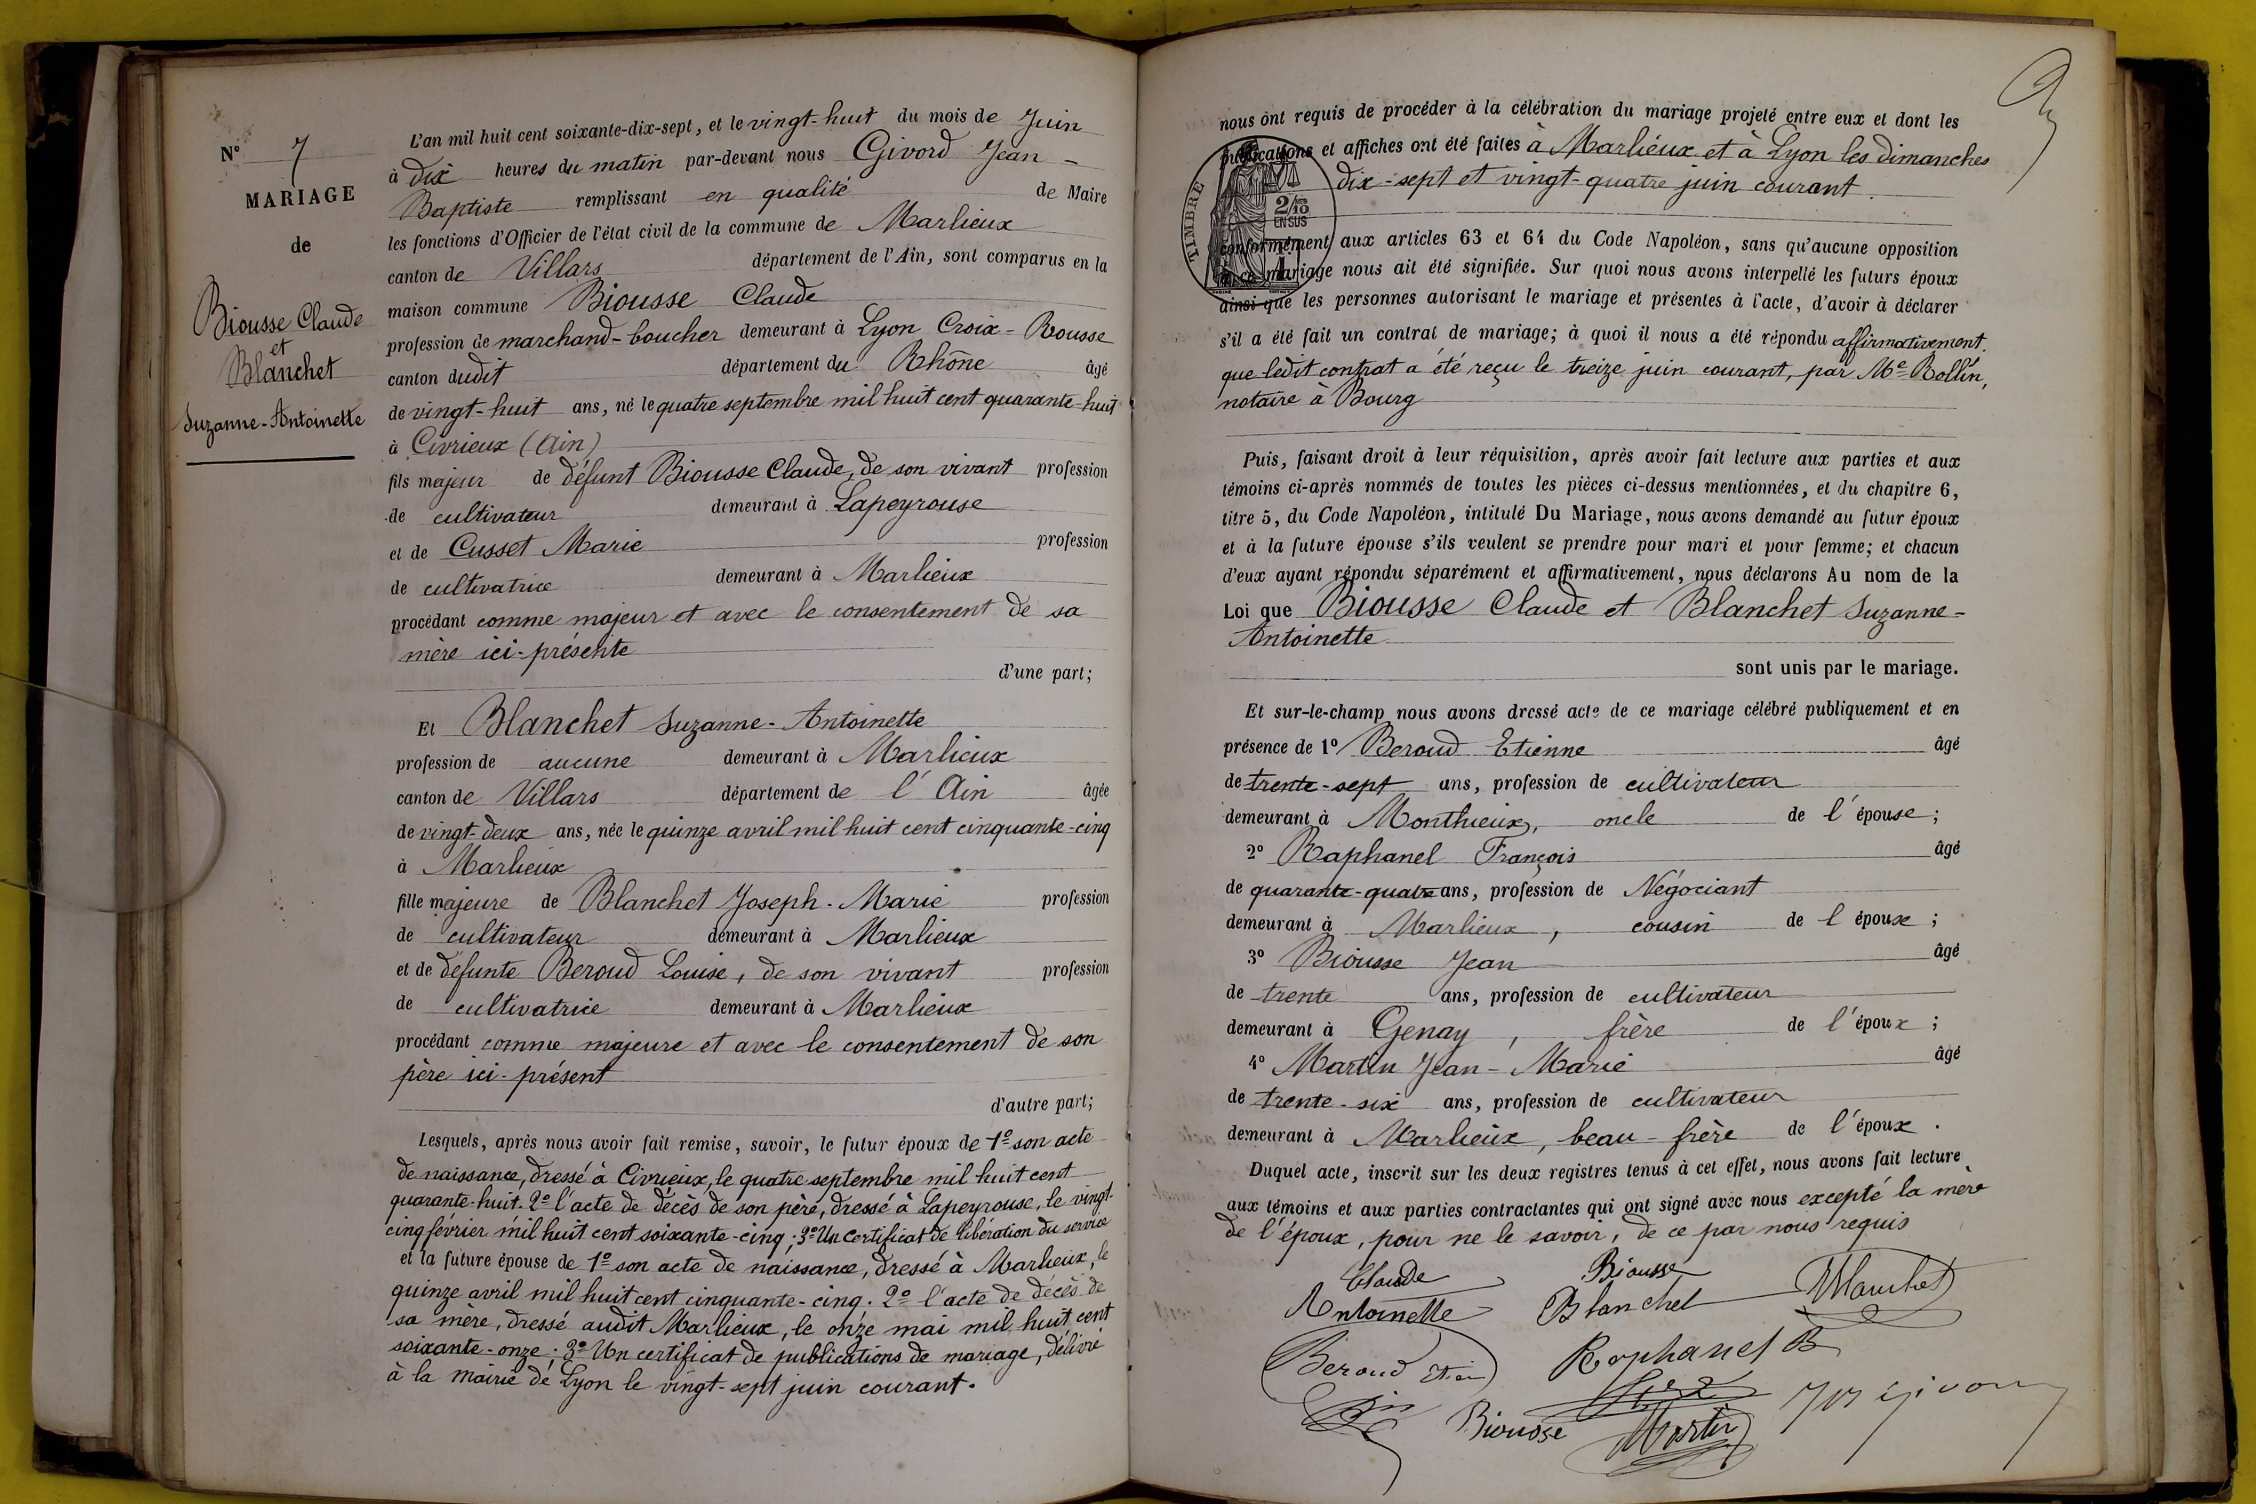 N° 7
MARIAGE
de
Biousse Claude
et
Blanchet
Suzanne-Antoinette
L'an mil huit cent soixante-dix-sept, et le vingt-huit du mois de Juin
à dix heures du matin par-devant nous Givord Jean-
Baptiste remplissant en qualité de Maire
les fonctions d'Officier de l'état civil de la commune de Marlieux
canton de Villars département de l'Ain, sont comparus en la
maison commune Biousse Claude
profession de marchand-boucher demeurant à Lyon Croix-Rousse
canton dudit département du Rhône âgé
de vingt-huit ans, né le quatre septembre mil huit cent quarante-huit
à Civrieux (Ain)
fils majeur de défunt Biousse Claude, de son vivant profession
de cultivateur demeurant à Lapeyrouse
et de Cusset Marie profession
de cultivatrice demeurant à Marlieux
procédant comme majeur et avec le consentement de sa
mère ici-présente
d'une part;
Et Blanchet Suzanne-Antoinette
profession de aucune demeurant à Marlieux
canton de Villars département de l'Ain âgée
de vingt-deux ans, née le quinze avril mil huit cent cinquante-cinq
à Marlieux
fille majeure de Blanchet Joseph-Marie profession
de cultivateur demeurant à Marlieux
et de défunte Beroud Louise, de son vivant profession
de cultivatrice demeurant à Marlieux
procédant comme majeure et avec le consentement de son
père ici-présent
d'autre part;
Lesquels, après nous avoir fait remise, savoir, le futur époux de 1° son acte
de naissance, dressé à Civrieux, le quatre septembre mil huit cent
quarante-huit. 2° l'acte de décès de son père, dressé à Lapeyrouse, le vingt-
cinq février mil huit cent soixante-cinq; 3° Un certificat de libération du service
et la future épouse de 1° son acte de naissance, dressé à Marlieux, le
quinze avril mil huit cent cinquante-cinq. 2° l'acte de décès de
sa mère, dressé audit Marlieux, le onze mai mil huit cent
soixante-onze; 3° Un certificat de publications de mariage, délivré
à la mairie de Lyon le vingt-sept juin courant.
nous ont requis de procéder à la célébration du mariage projeté entre eux et dont les
publications et affiches ont été faites à Marlieux et à Lyon les dimanches
dix-sept et vingt-quatre juin courant.
TIMBRE
2/10
EN SUS
conformément aux articles 63 et 64 du Code Napoléon, sans qu'aucune opposition
à ce mariage nous ait été signifiée. Sur quoi nous avons interpellé les futurs époux
ainsi que les personnes autorisant le mariage et présentes à l'acte, d'avoir à déclarer
s'il a été fait un contrat de mariage; à quoi il nous a été répondu affirmativement.
que ledit contrat a été reçu le treize juin courant, par Me Rollin,
notaire à Bourg
Puis, faisant droit à leur réquisition, après avoir fait lecture aux parties et aux
témoins ci-après nommés de toutes les pièces ci-dessus mentionnées, et du chapitre 6,
titre 5, du Code Napoléon, intitulé Du Mariage, nous avons demandé au futur époux
et à la future épouse s'ils veulent se prendre pour mari et pour femme; et chacun
d'eux ayant répondu séparément et affirmativement, nous déclarons Au nom de la
Loi que Biousse Claude et Blanchet Suzanne-
Antoinette
sont unis par le mariage.
Et sur-le-champ nous avons dressé acte de ce mariage célébré publiquement et en
présence de 1° Beroud Etienne âgé
de trente-sept ans, profession de cultivateur
demeurant à Monthieux, oncle de l'épouse;
2° Raphanel François âgé
de quarante-quatre ans, profession de Négociant
demeurant à Marlieux, cousin de l'époux;
3° Biousse Jean âgé
de trente ans, profession de cultivateur
demeurant à Genay, frère de l'époux;
4° Martin Jean-Marie âgé
de trente-six ans, profession de cultivateur
demeurant à Marlieux, beau-frère de l'époux.
Duquel acte, inscrit sur les deux registres tenus à cet effet, nous avons fait lecture
aux témoins et aux parties contractantes qui ont signé avec nous excepté la mère
de l'époux, pour ne le savoir, de ce par nous requis
Claude Biousse
Antoinette Blanchet Blanchet
Beroud Raphanel
Biousse Martin Givord